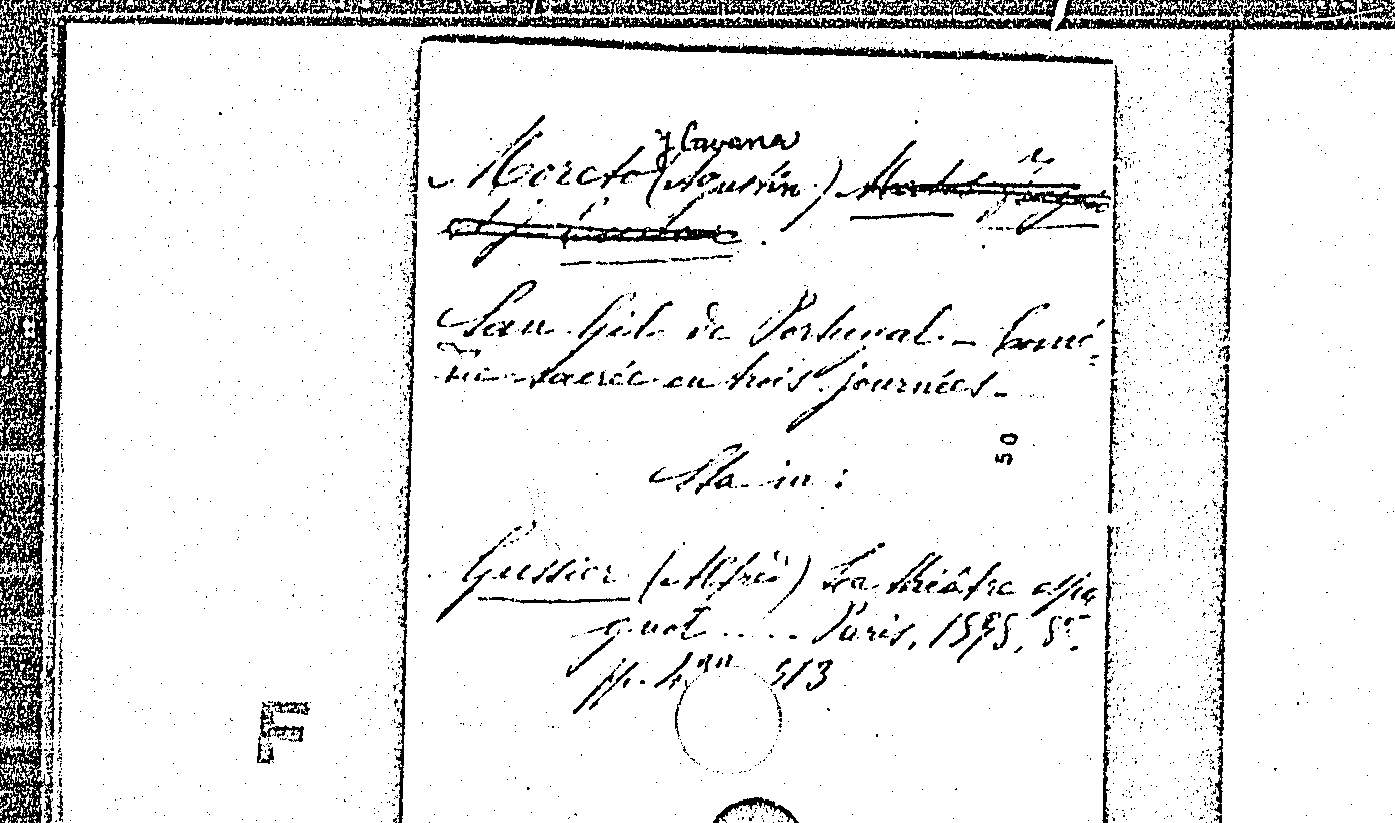 y Cavana
Moreto (Agustin)
San Gil de Portugal. - Comé-
die sacrée en trois journées -
50
Sta in :
Gassier (Alfred) Le théâtre espa
gnol .... Paris,
pp. 513
F